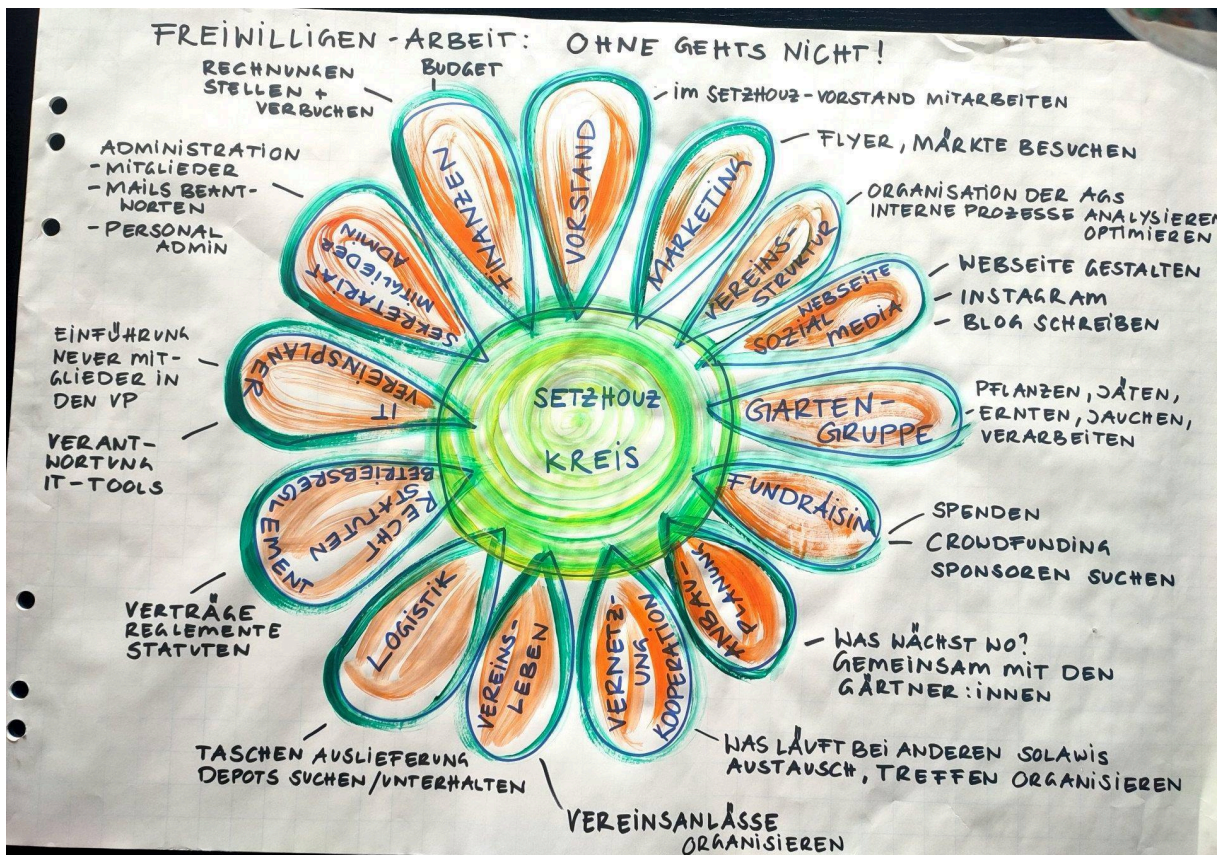 FREIWILLIGEN-ARBEIT: OHNE GEHTS NICHT!
RECHNUNGEN
STELLEN +
VERBUCHEN
BUDGET
FINANZEN
VORSTAND
im SETZHOUZ-VORSTAND MITARBEITEN
MARKETING
FLYER, MÄRKTE BESUCHEN
VEREINS-
STRUKTUR
ORGANISATION DER AGS
INTERNE PROZESSE ANALYSIEREN
OPTIMIEREN
WEBSEITE
SOZIAL MEDIA
WEBSEITE GESTALTEN
INSTAGRAM
BLOG SCHREIBEN
GARTEN-
GRUPPE
PFLANZEN, JÄTEN,
ERNTEN, JAUCHEN,
VERARBEITEN
FUNDRAISIN
SPENDEN
CROWDFUNDING
SPONSOREN SUCHEN
ANBAU-
PLANUNG
WAS WÄCHST WO?
GEMEINSAM MIT DEN
GÄRTNER:INNEN
VERNETZ-
UNG
KOOPERATION
WAS LÄUFT BEI ANDEREN SOLAWIS
AUSTAUSCH, TREFFEN ORGANISIEREN
VEREINS-
LEBEN
VEREINSANLÄSSE
ORGANISIEREN
LOGISTIK
TASCHEN AUSLIEFERUNG
DEPOTS SUCHEN/UNTERHALTEN
RECHT
STATUTEN
BETRIEBSREGLEMENT
VERTRÄGE
REGLEMENTE
STATUTEN
IT
VEREINSPLANER
EINFÜHRUNG
NEUER MIT-
GLIEDER IN
DEN VP
VERANT-
WORTUNG
IT-TOOLS
SEKRETARIAT
MITGLIEDER
ADMIN
ADMINISTRATION
- MITGLIEDER
- MAILS BEANT-
WORTEN
- PERSONAL
ADMIN
SETZHOUZ
KREIS